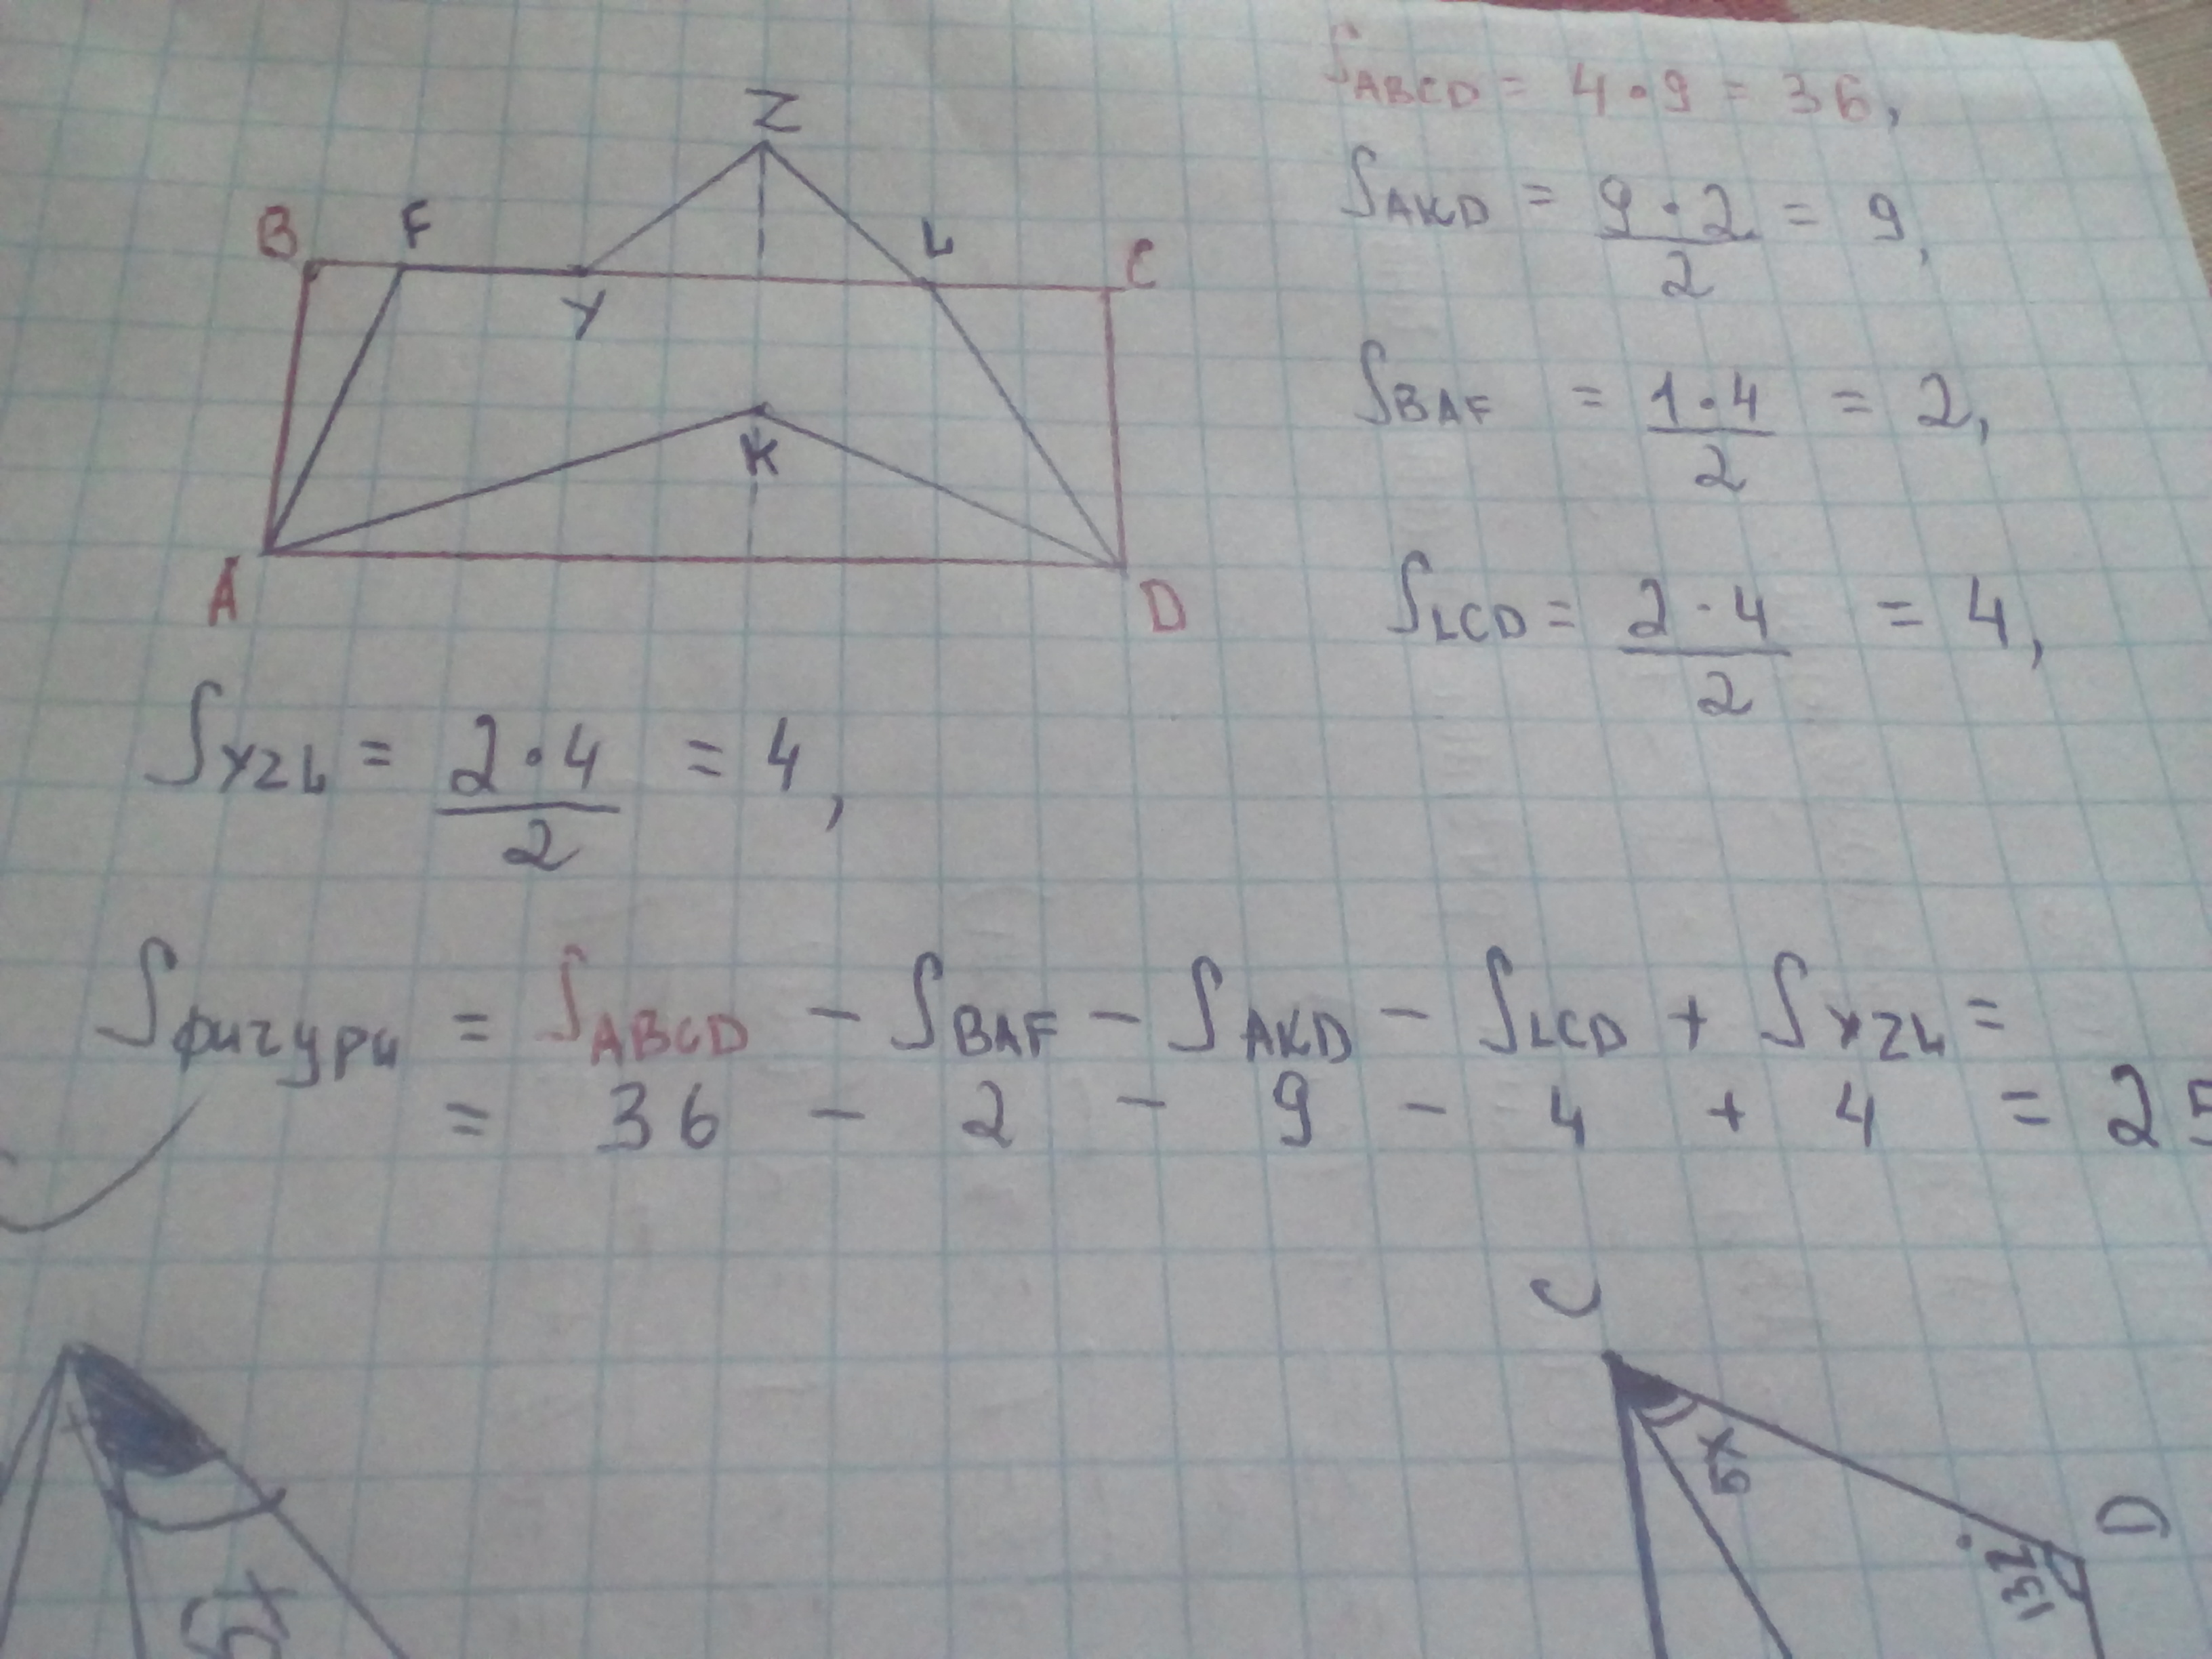 Z
B F Y L C
K
A D
S ABCD = 4 · 9 = 36,
S AKD = 9 · 2 / 2 = 9,
S BAF = 1 · 4 / 2 = 2,
S LCD = 2 · 4 / 2 = 4,
S YZL = 2 · 4 / 2 = 4,
S фигури = S ABCD − S BAF − S AKD − S LCD + S YZL =
= 36 − 2 − 9 − 4 + 4 = 25
C
D
132
5x